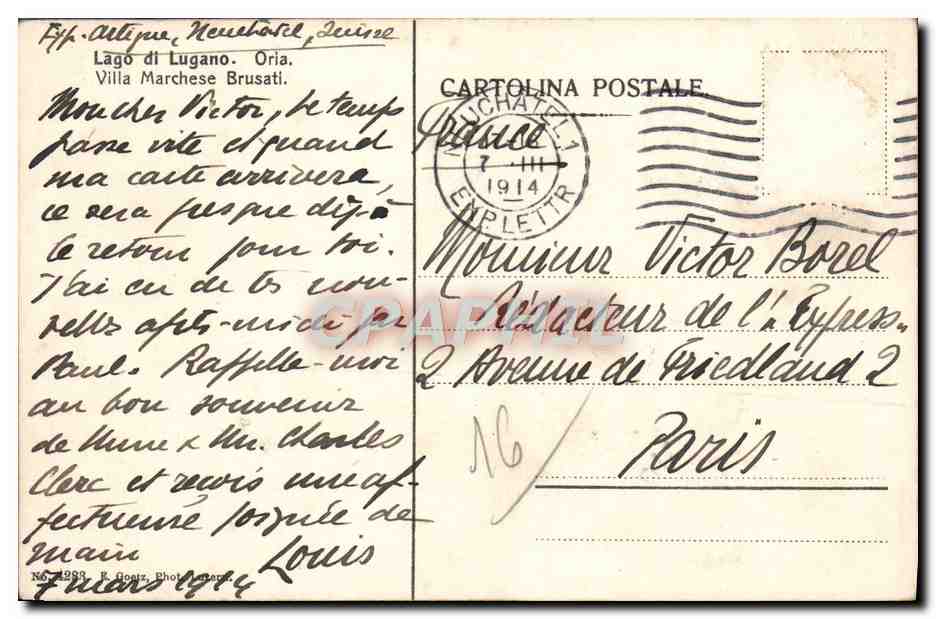 Exp. Attique, Neuchâtel, Suisse
Lago di Lugano. Oria.
Villa Marchese Brusati.
Mon cher Victor, le temps
passe vite et quand
ma carte arrivera,
ce sera presque déjà
le retour pour toi.
J'ai eu de tes nou-
velles après-midi par
Paul. Rappelle-moi
au bon souvenir
de Mme & Mr. Charles
Clerc et reçois une af-
fectueuse poignée de
main Louis
No. 4283 E. Goetz, Phot. Luzern.
7 mars 1914
CARTOLINA POSTALE.
France
NEUCHATEL 1
7. III
1914
EXP. LETTR
Monsieur Victor Borel
Rédacteur de l'"Express"
2 Avenue de Friedland 2
Paris
16
CPAPHIL